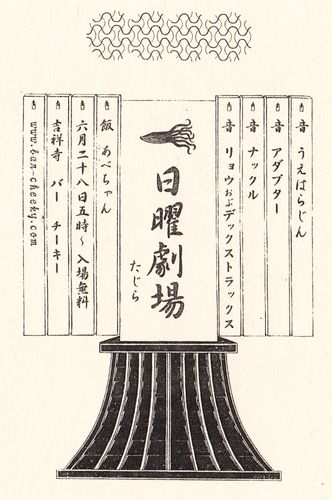 音 うえはらじん
音 アダプター
音 ナックル
音 リョウおぶデックストラックス
日曜劇場
たじら
飯 あべちゃん
六月二十八日五時〜 入場無料
吉祥寺 バー チーキー
www.bar-cheeky.com